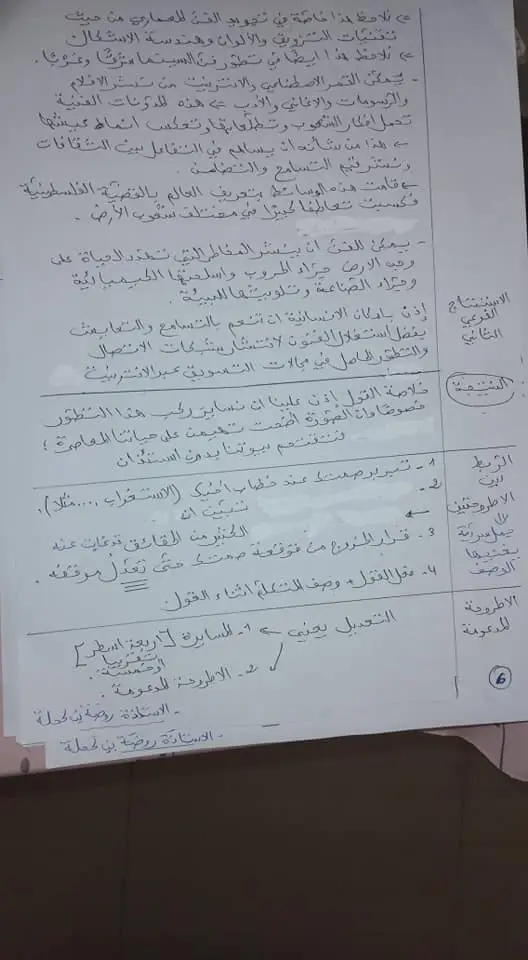 => نلاحظ هذا خاصة في تجويد الفن المعماري من حيث
تقنيات التزويق والألوان وهندسة الأشكال
=> نلاحظ هذا ايضا في تطور فن السينما شرقا وغربا.
- يمكن القمر الاصطناعي والانترنيت من نشر الافلام
والرسومات والاغاني والأدب => هذه المدونات الفنية
تحمل افكار الشعوب وتطلعاتها وتعكس انماط عيشها
=> هذا من شأنه ان يساهم في التفاعل بين الثقافات
ونشر قيم التسامح والتضامن.
=> قامت هذه الوسائط بتعريف العالم بالقضية الفلسطينية
فكسبت تعاطفا كبيرا في مختلف شعوب الأرض.
- يمكن للفن ان ينشر المخاطر التي تهدد الحياة على
وجه الارض جراء الحروب واسلحتها الكيميائية
وجراء الصناعة وتلويثها للبيئة.
الاستنتاج
الفرعي
الثاني
إذن بإمكان الانسانية ان تنعم بالتسامح والتعايش
بفضل استغلال الفنون لانتشار شبكات الاتصال
والتطور الحاصل في مجالات التسويق عبر الانترنيت
النتيجة
خلاصة القول اذن علينا ان نساير ركب هذا التطور
خصوصا وان الصورة اضحت تهيمن على حياتنا المعاصرة؛
فتقتحم بيوتنا بدون استئذان
الربط
بين
الاطروحتين
يقتضيها
الوصف
1- تشير بر صمتك عند خطاب (الاستغراب ....مثلا).
2- تثبيت ان
الكثير من الحقائق غابت عنه
3- قرار الخروج من قوقعة صمتك حتى تعدل موقفه.
4- فعل القول + وصف المتكلم اثناء القول
الاطروحة
المدعومة
التعديل يعني => 1- المسايرة [اربعة اسطر]
تقريبا
او خمسة.
2- الاطروحة المدعومة.
6
- الاستاذة روضة بن كحلة
- الاستاذة روضة بن كحلة